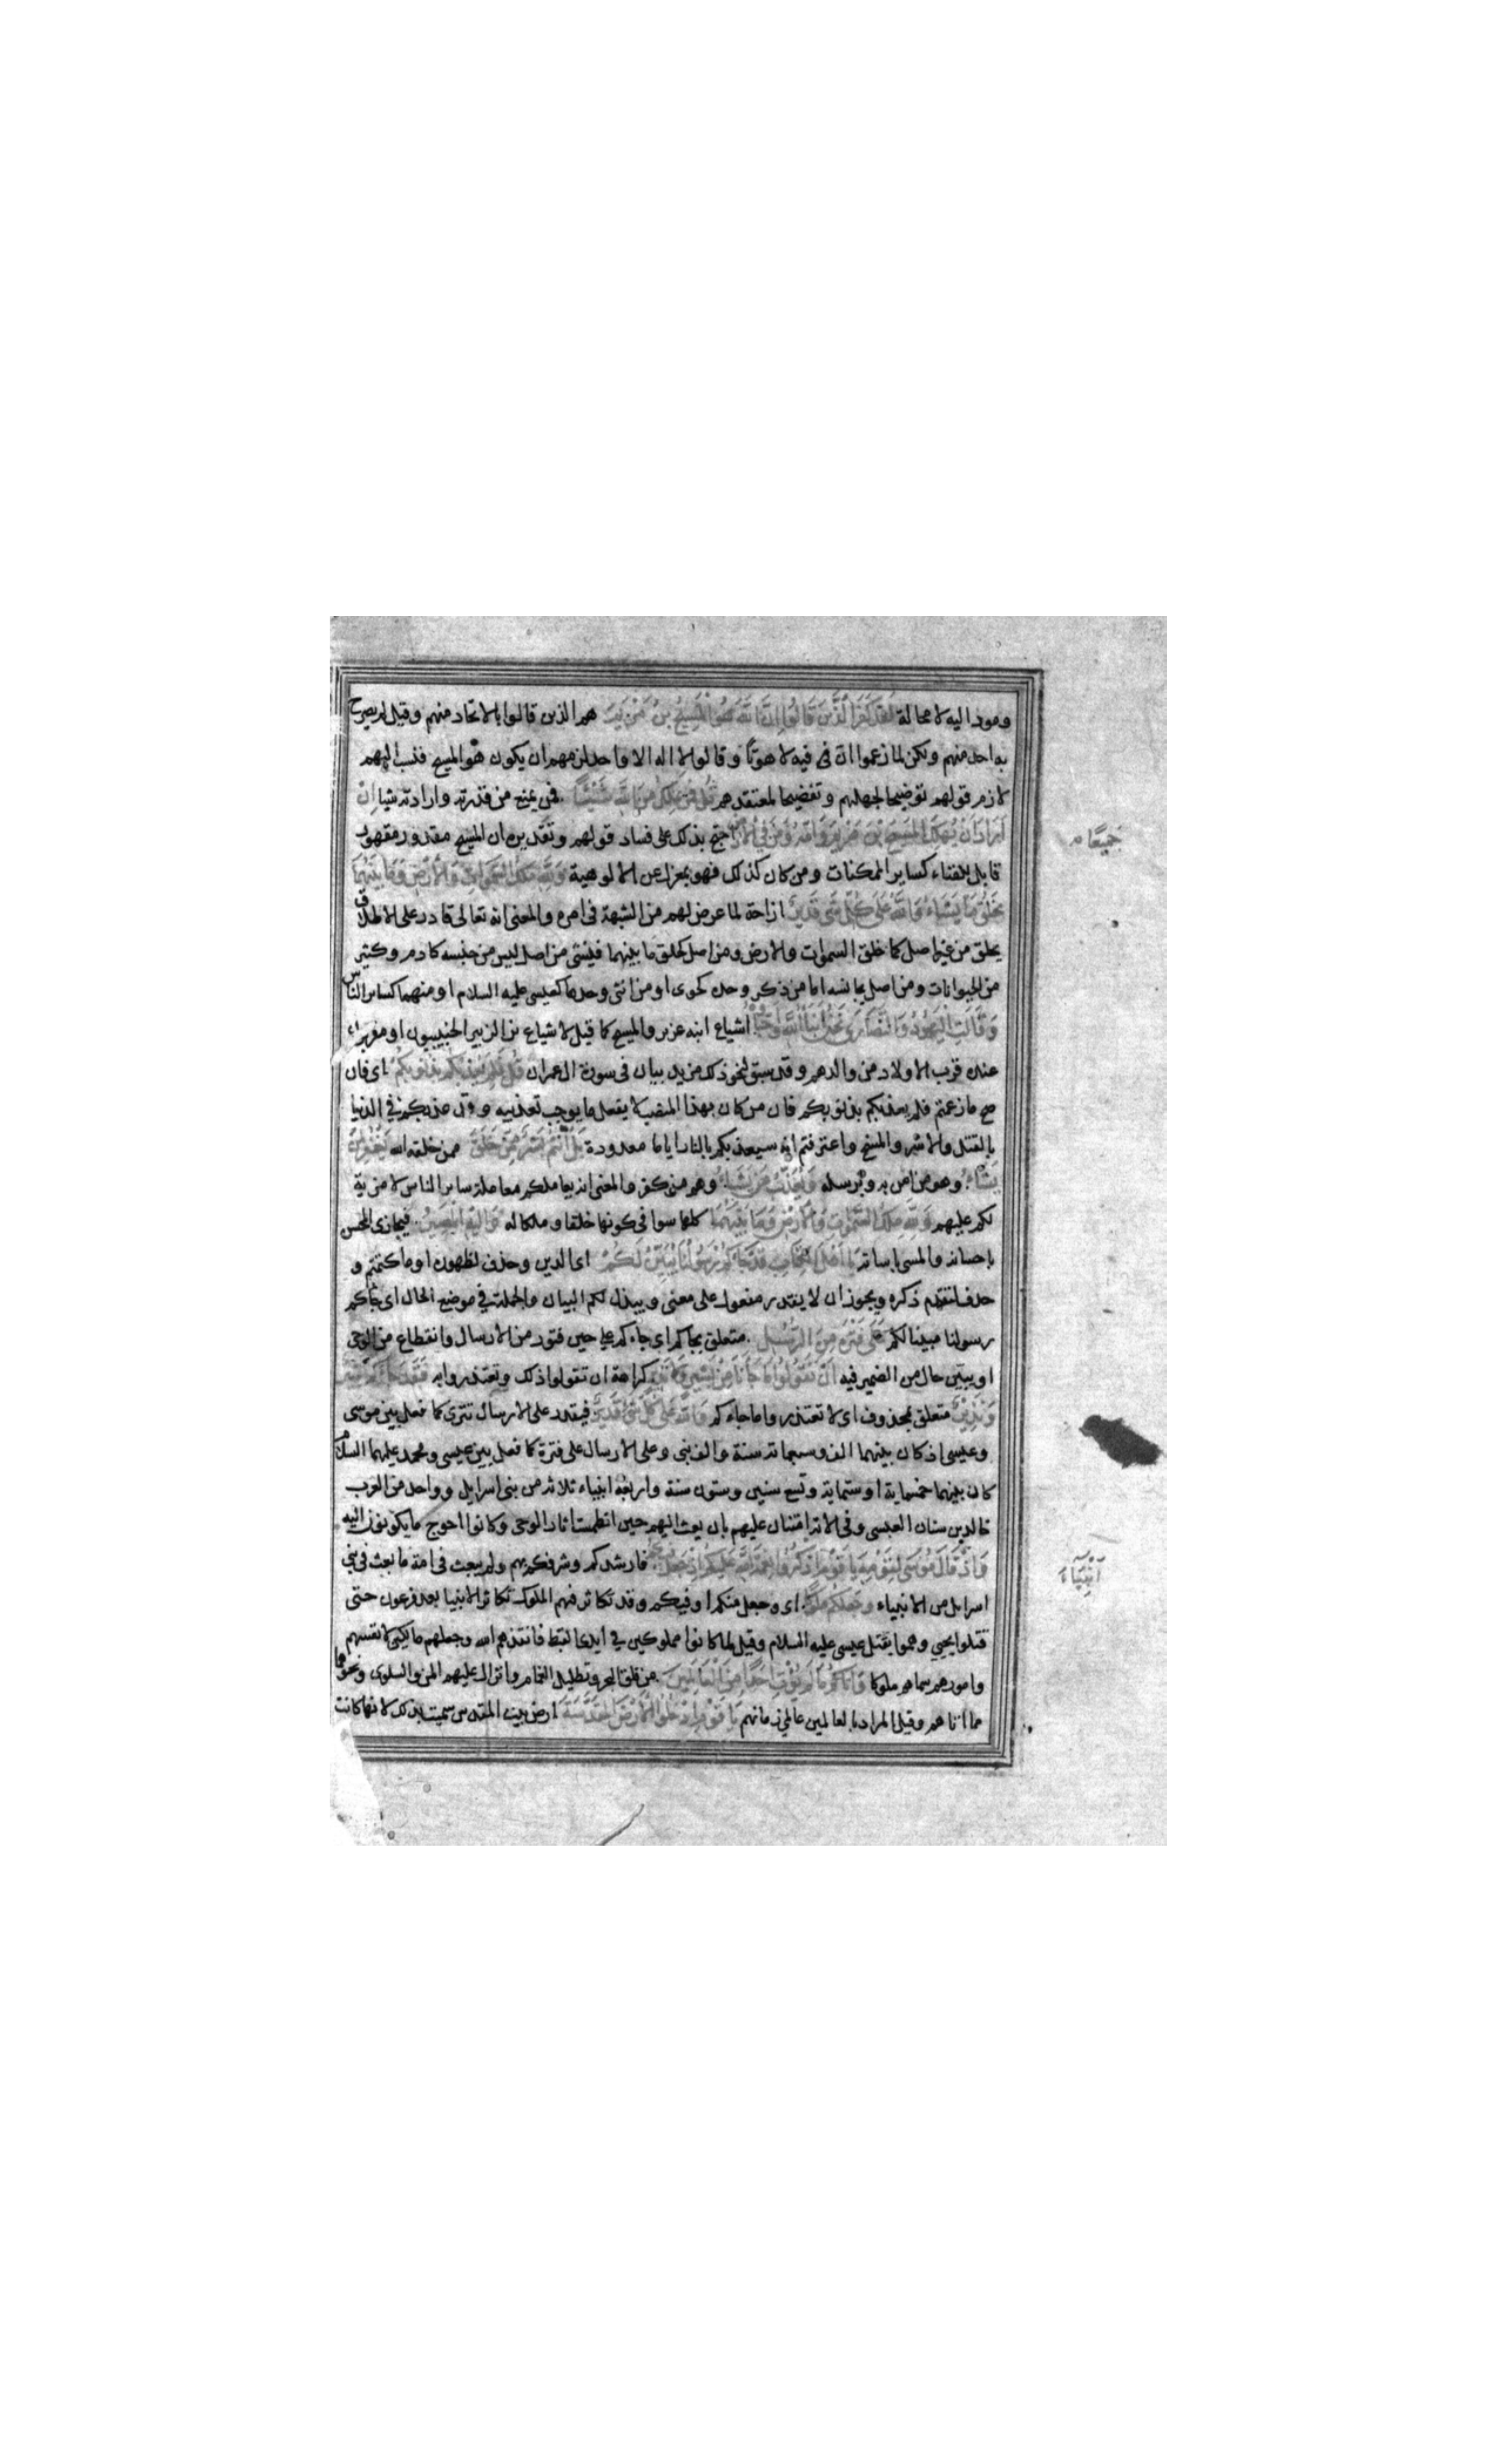 ومود اليه لا محالة لقد كفر الذين قالوا ان الله هو المسيح بن مريم هم الذين قالوا بالاتحاد منهم وقيل لم يصرح
به احد منهم ولكن لما زعموا ان فيه لاهوتا وقالوا لا اله الا واحد لزمهم ان يكون هو المسيح فنسب اليهم
لازم قولهم توضيحا لجهلهم وتفضيحا لمعتقدهم قل فمن يملك من الله شيئا فمن يمنع من قدرته وارادته شيا ان
اراد ان يهلك المسيح بن مريم وامه ومن في الارض احتج بذلك على فساد قولهم وتقديره ان المسيح مقدور مقهور
جميعا
قابل للفناء كساير الممكنات ومن كان كذلك فهو بمعزل عن الالوهية ولله ملك السموات والارض وما بينهما
يخلق ما يشاء والله على كل شئ قدير ازاحة لما عرض لهم من الشبهة في امره والمعنى انه تعالى قادر على الاطلاق
يخلق من غير اصل كما خلق السموات والارض ومن اصل كخلق ما بينهما فينشئ من اصل ليس من جنسه كادم وكثير
من الحيوانات ومن اصل يجانسه اما من ذكر وحده كحوى او من انثى وحدها كعيسى عليه السلام او منهما كساير الناس
وقالت اليهود والنصارى نحن ابناء الله واحباؤه اشياع ابنه عزير والمسيح كما قيل لاشياع بن الزبير الخبيبيون او مقربون
عنده قرب الاولاد من والدهم وقد سبق لنحو ذلك مزيد بيان في سورة ال عمران قل فلم يعذبكم بذنوبكم اى فان
صح ما زعمتم فلم يعذبكم بذنوبكم فان من كان بهذا المنصب لا يفعل ما يوجب تعذيبه وقد عذبكم في الدنيا
بالقتل والاسر والمسخ واعترفتم انه سيعذبكم بالنار اياما معدودة بل انتم بشر ممن خلق ممن خلقه الله يغفر لمن
يشاء وهم من امن به وبرسله ويعذب من يشاء وهم من كفر والمعنى انه يعاملكم معاملة ساير الناس لا مزية
لكم عليهم ولله ملك السموات والارض وما بينهما كلها سوا في كونها خلقا وملكا له واليه المصير فيجازى المحسن
باحسانه والمسي باساته يا اهل الكتاب قد جاءكم رسولنا يبين لكم اى الدين وحذف لظهوره او ما كتمتم و
حذف لتقدم ذكره ويجوز ان لا يقدر مفعول على معنى ويبذل لكم البيان والجملة في موضع الحال اى جاءكم
رسولنا مبينا لكم على فترة من الرسل متعلق بجاكم اى جاءكم على حين فتور من الارسال وانقطاع من الوحى
او يبين حال من الضمير فيه ان تقولوا ما جاءنا من بشير ولا نذير كراهة ان تقولوا ذلك وتعتذروا به فقد جاءكم بشير
ونذير متعلق بمحذوف اى لا تعتذروا ما جاءكم والله على كل شئ قدير فيقدر على الارسال تترى كما فعل بين موسى
وعيسى اذ كان بينهما الف وسبعماته سنة والف نبى وعلى الارسال على فترة كما فعل بين عيسى ومحمد عليهما السلام
كان بينهما خمسماية او ستماية وتسع سنين وستون سنة واربعة انبياء ثلاثة من بنى اسرايل وواحد من العرب
خالد بن سنان العبسى وفي الاية امتنان عليهم بان بعث اليهم حين انطمست اثار الوحى وكانوا احوج ما يكونون اليه
واذ قال موسى لقومه يا قوم اذكروا نعمة الله عليكم اذ جعل فيكم فارشدكم وشرفكم بهم ولم يبعث في امة ما بعث في بنى
انبياء
اسرايل من الانبياء وجعلكم ملوكا اى وجعل منكم او فيكم وقد تكاثر فيهم الملوك تكاثر الانبيا بعد فرعون حتى
قتلوا يحيى وهموا بقتل عيسى عليه السلام وقيل لما كانوا مملوكين في ايدى القبط فانقذهم الله وجعلهم مالكين لانفسهم
وامورهم سماهم ملوكا واتاكم ما لم يؤت احدا من العالمين من فلق البحر وتظليل الغمام وانزال عليهم المن والسلوى ونحوها
مما اتاهم وقيل المراد بالعالمين عالمى زمانهم يا قوم ادخلوا الارض المقدسة ارض بيت المقدس سميت بذلك لانها كانت